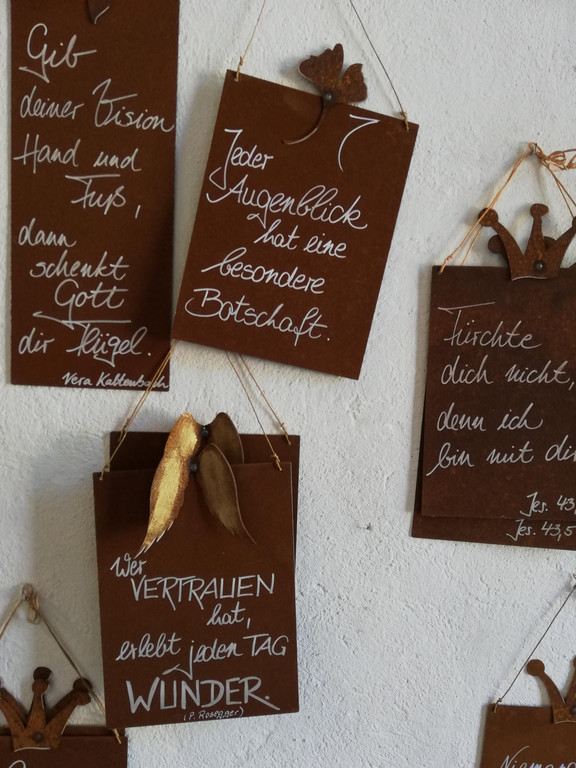 Gib
deiner Vision
Hand und
Fuß,
dann
schenkt
Gott
dir Flügel.
Vera Kaltenbach
Jeder
Augenblick
hat eine
besondere
Botschaft.
Fürchte
dich nicht,
denn ich
bin mit dir
Jes. 43,
Jes. 43,5
Wer
VERTRAUEN
hat,
erlebt jeden TAG
WUNDER.
(P. Rosegger)
Niemand